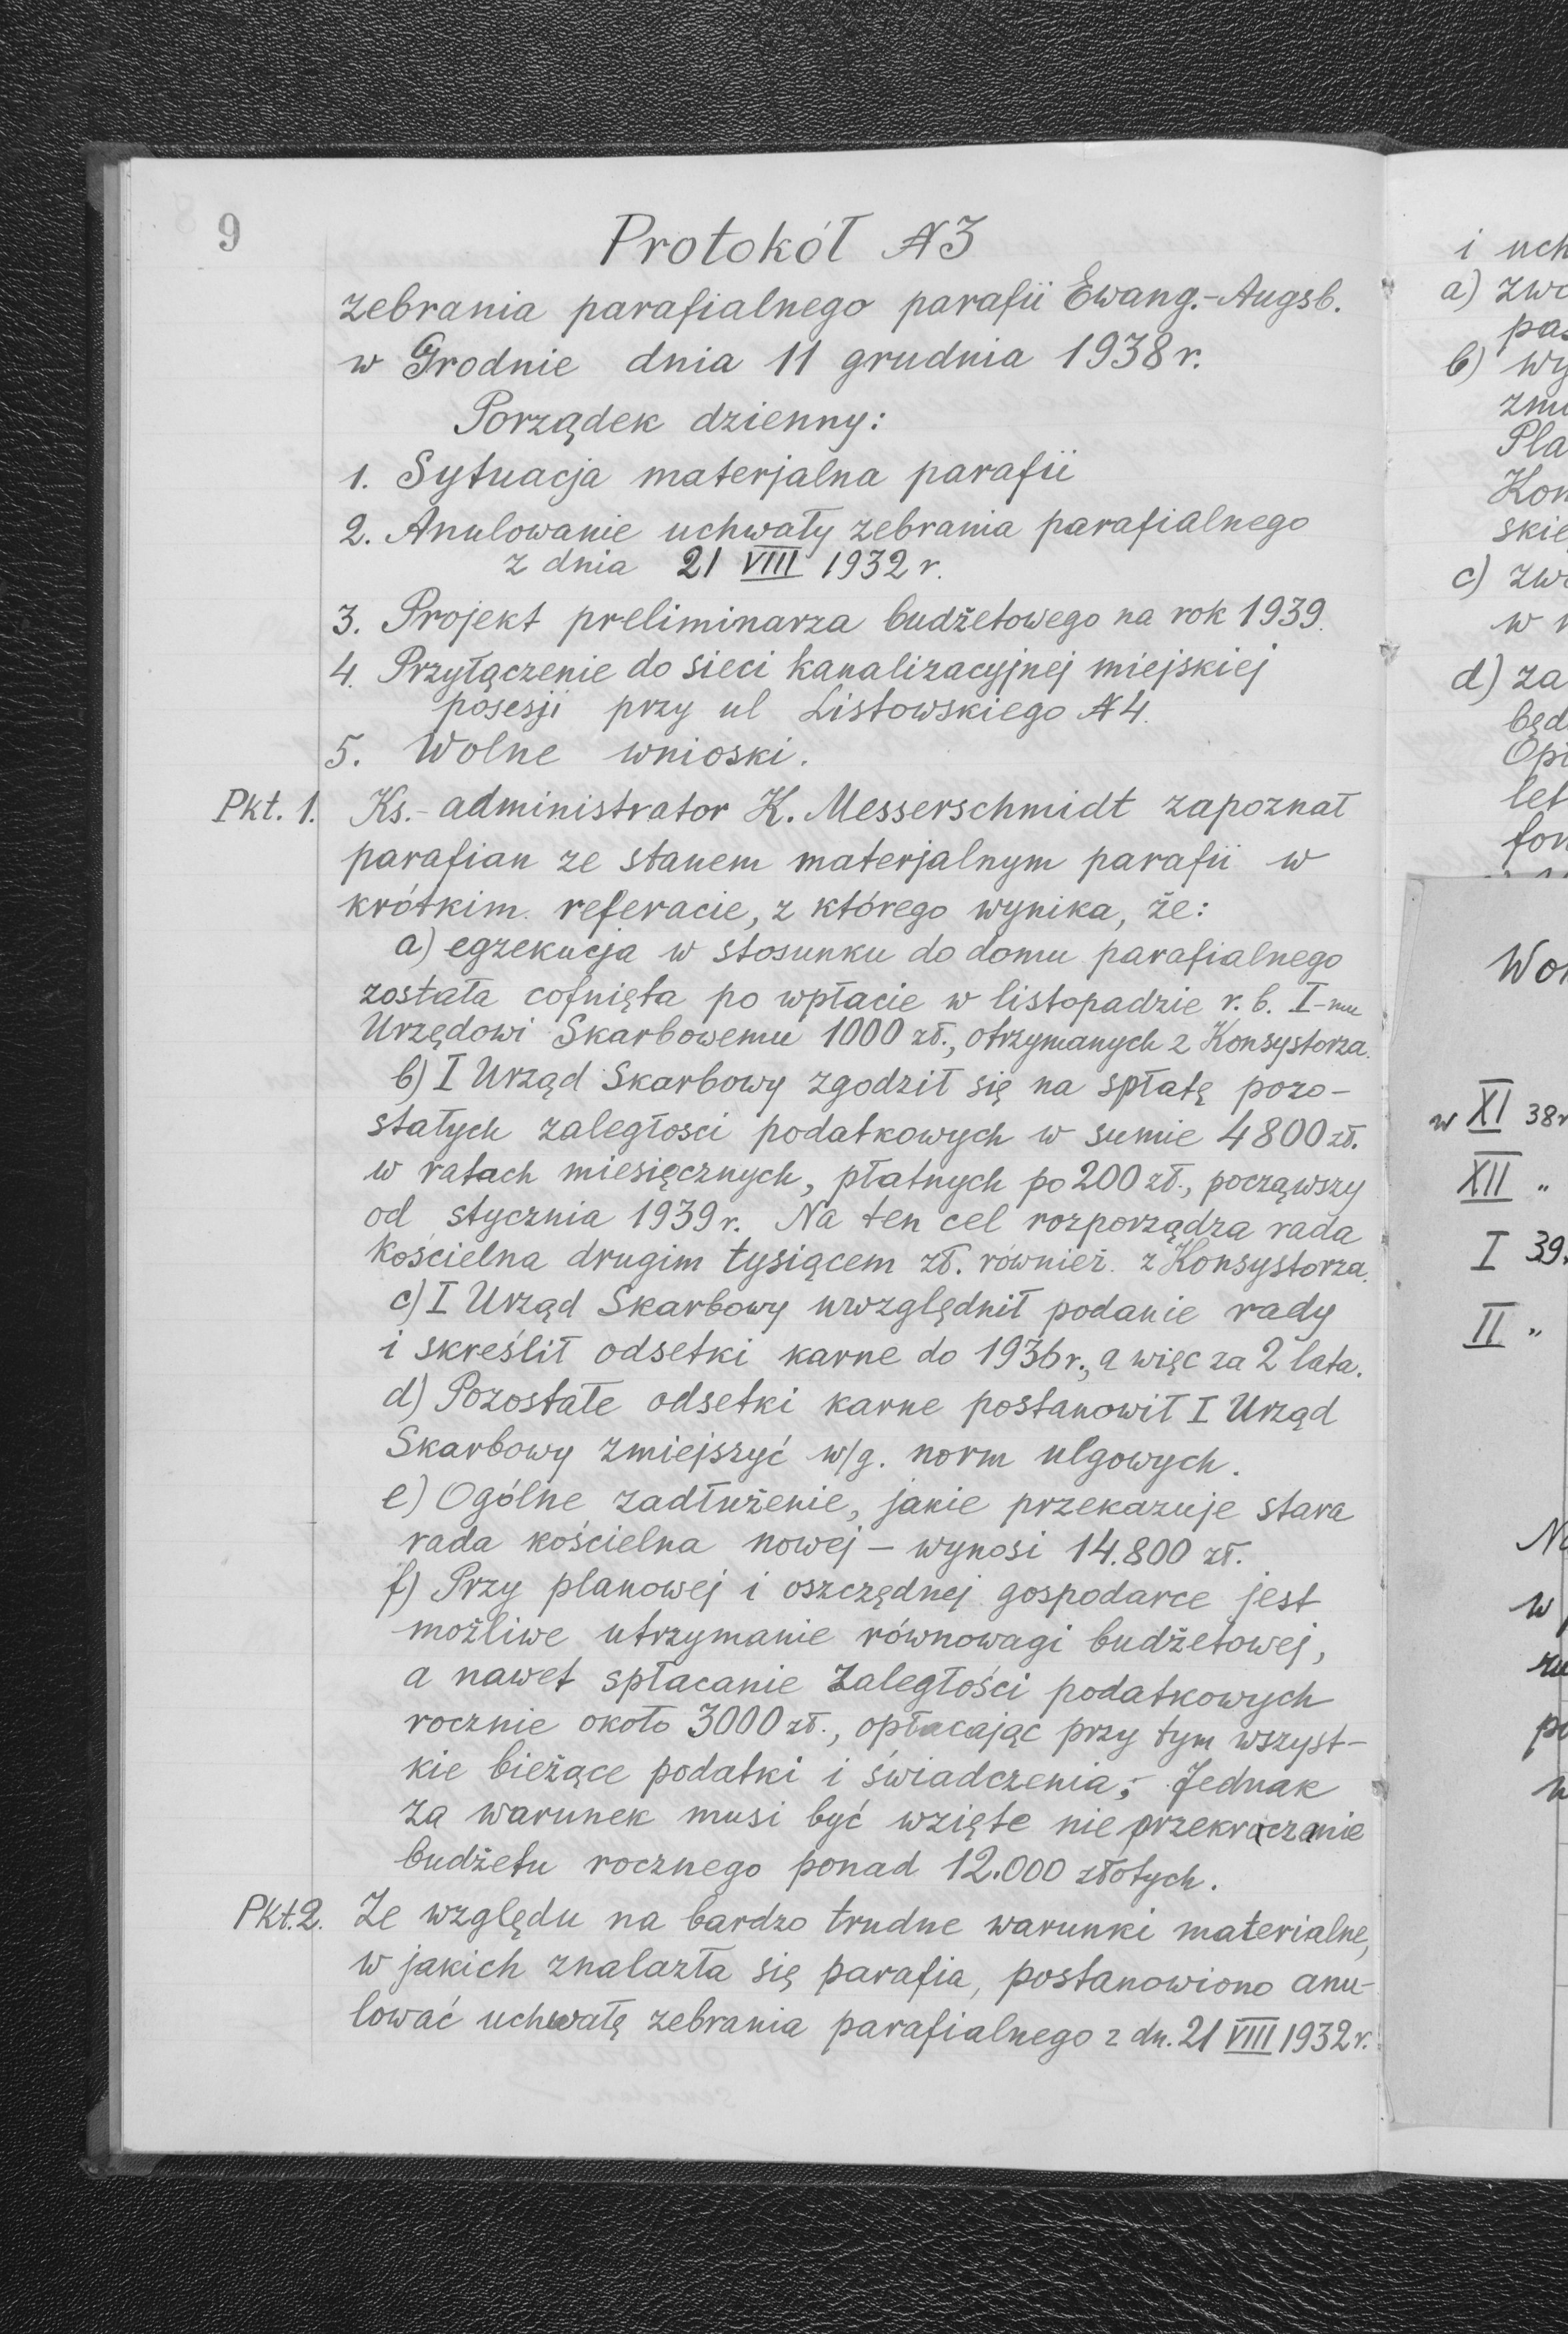 9
Protokół N3
zebrania parafialnego parafii Ewang.-Augsb.
w Grodnie dnia 11 grudnia 1938 r.
Porządek dzienny:
1. Sytuacja materjalna parafii
2. Anulowanie uchwały zebrania parafialnego
z dnia 21 VIII 1932 r.
3. Projekt preliminarza budżetowego na rok 1939.
4. Przyłączenie do sieci kanalizacyjnej miejskiej
posesji przy ul Listowskiego N4.
5. Wolne wnioski.
Pkt. 1. Ks.-administrator K. Messerschmidt zapoznał
parafian ze stanem materjalnym parafii w
krótkim referacie, z którego wynika, że:
a) egzekucja w stosunku do domu parafialnego
została cofnięta po wpłacie w listopadzie r. b. I-mu
Urzędowi Skarbowemu 1000 zł., otrzymanych z Konsystorza.
b) I Urząd Skarbowy zgodził się na spłatę pozo-
stałych zaległosci podatkowych w sumie 4800 zł.
w ratach miesięcznych, płatnych po 200 zł., począwszy
od stycznia 1939 r. Na ten cel rozporządza rada
kościelna drugim tysiącem zł. również z Konsystorza.
c) I Urząd Skarbowy uwzględnił podanie rady
i skreślił odsetki karne do 1936 r., a więc za 2 lata.
d) Pozostałe odsetki karne postanowił I Urząd
Skarbowy zmiejszyć w/g. norm ulgowych.
e) Ogólne zadłużenie, jakie przekazuje stara
rada kościelna nowej – wynosi 14.800 zł.
f) Przy planowej i oszczędnej gospodarce jest
możliwe utrzymanie równowagi budżetowej,
a nawet spłacanie zaległości podatkowych
rocznie około 3000 zł., opłacając przy tym wszyst-
kie bieżące podatki i świadczenia; Jednak
za warunek musi być wzięte nie przekraczanie
budżetu rocznego ponad 12.000 złotych.
Pkt. 2. Ze względu na bardzo trudne warunki materialne,
w jakich znalazła się parafia, postanowiono anu-
lować uchwałę zebrania parafialnego z dn. 21 VIII 1932 r.
i uch
a) zwo
b) wy
Pla
skie
c) zwo
d) za
będ
let
w XI 38r
XII "
I 39.
II "